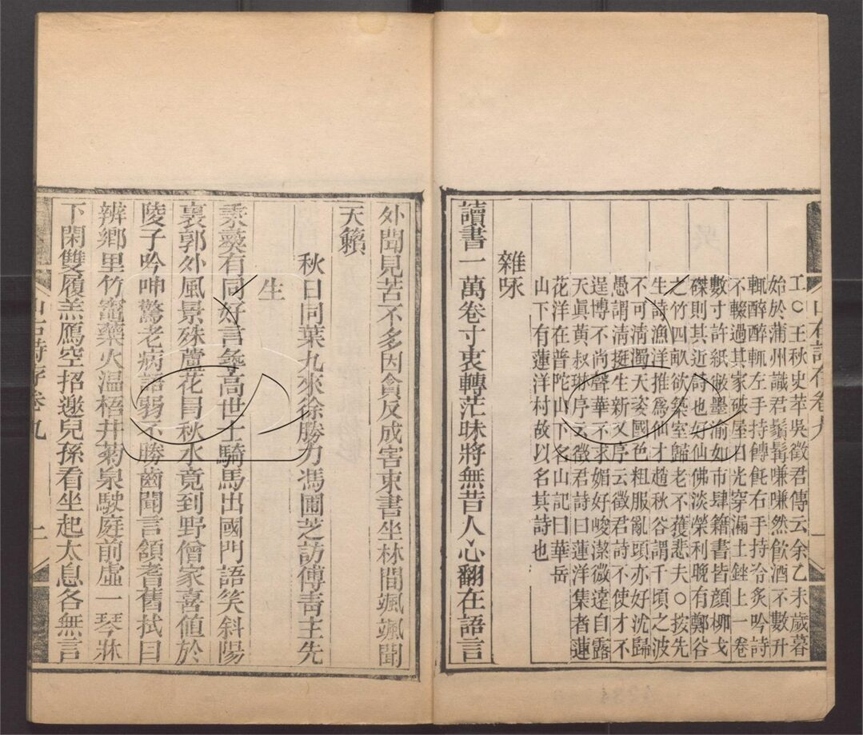 工○王秋史苹吳徵君傳云余乙未歲暮
始於蒲州識君鬚髯嗛嗛然飲酒不數升
輒醉醉輒左手持餺飥右手持冷炙吟詩
不輟過其家破屋日光穿漏土銼上一卷
數寸許紙敝墨渝如市肆籍書皆顏柳戈
磔則其近詩也好仙佛淡榮利晚有鄭谷
之竹四畝欲築室歸老不獲悲夫○按先
生詩漁洋推爲仙才趙秋谷謂千頃之波
不可清濁天姿國色粗服亂頭亦好沈歸
愚謂清挺生新又序云徵君詩不使才不
逞博不尚聲華不求媚好峻潔微遠自露
天眞黃叔琳序云徵君詩曰蓮洋集者蓮
花洋在普陀山下名山記曰華岳
山下有蓮洋村故以名其詩也
雜咏
讀書一萬卷寸衷轉茫昧將無昔人心翻在語言
山右詩存卷九
外聞見苦不多因貪反成害束書坐林間颯颯聞
天籟
秋日同葉九來徐勝力馮圃芝訪傅靑主先
生
秉燹有同好言尋高世士騎馬出國門語笑斜陽
裏郭外風景殊蘆花冐秋水竟到野僧家喜値於
陵子吟呻驚老病語弱不勝齒聞言頷耆舊拭目
辨鄉里竹竈藥火溫梧井菊泉駛庭前虛一琴牀
下閑雙履羔鴈空招邀兒孫看坐起太息各無言
山右詩存卷九